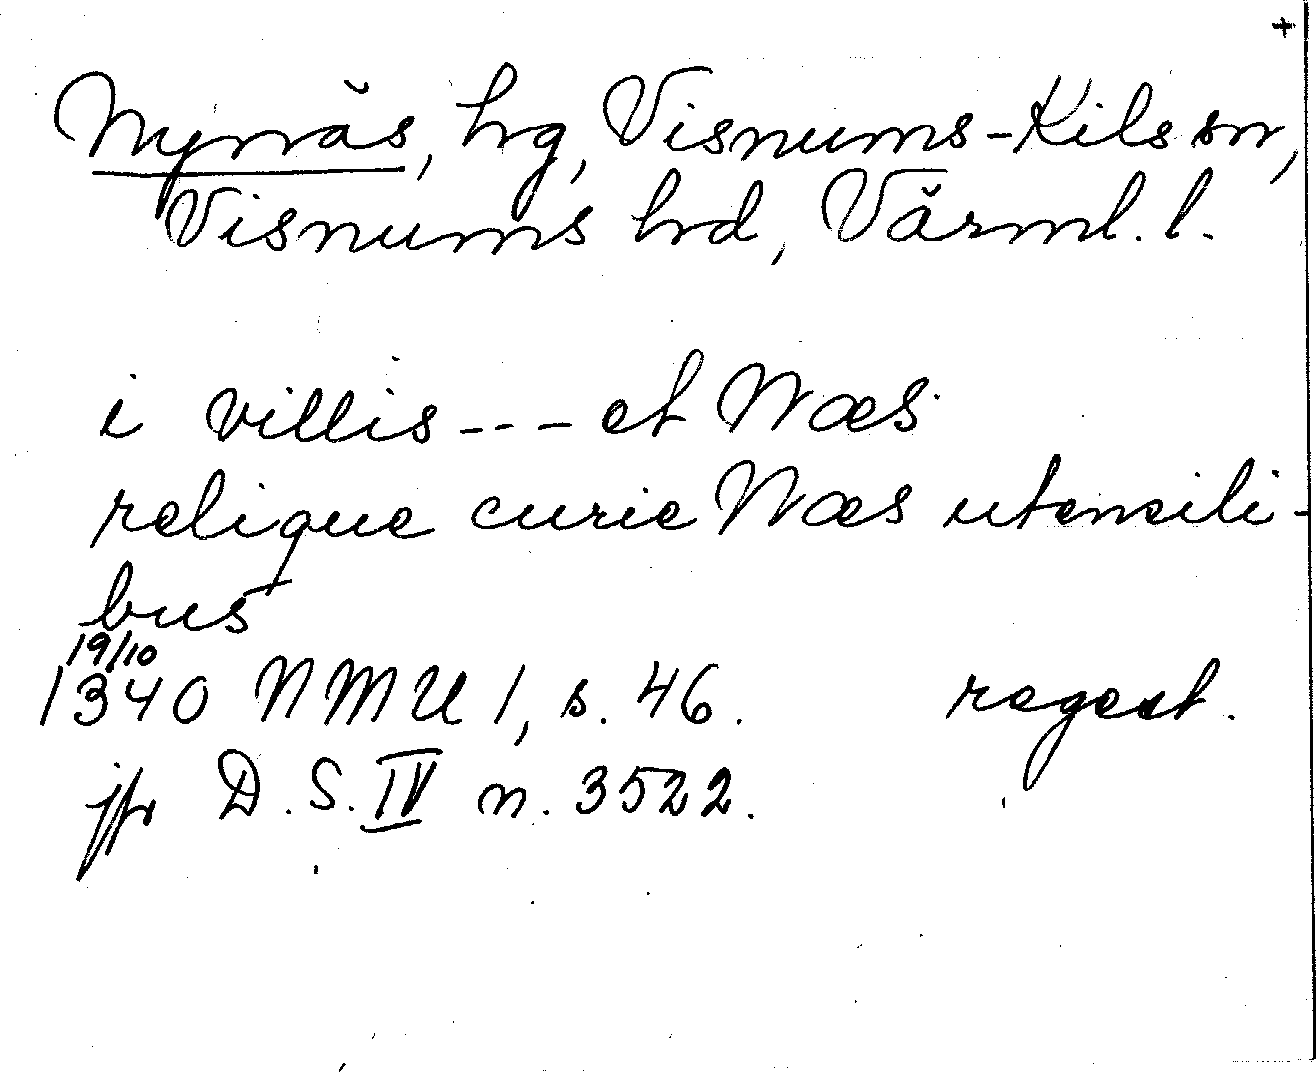 +
Nynäs, hg, Visnums-Kils sn,
Visnums hd, Värml. l.
i villis --- et Næs
relique curie Næs utensili-
bus
19/10
1340 NMU 1, s. 46. regest.
jfr D.S. IV n. 3522.